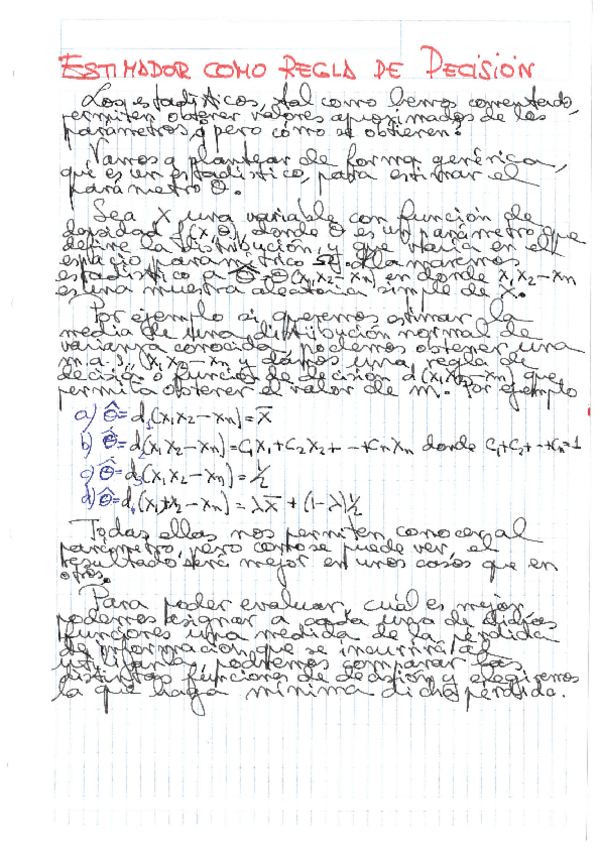 ESTIMADOR COMO REGLA DE DECISIÓN
Los estadísticos, tal como hemos comentado,
permiten obtener valores aproximados de los
parámetros, ¿pero cómo se obtienen?
Vamos a plantear de forma genérica,
que es un estadístico, para estimar el
parámetro θ.
Sea X una variable con función de
densidad f(x,θ), donde θ es un parámetro que
define la distribución, y que varía en el
espacio paramétrico Ω. Llamaremos
estadístico a θ̂ = θ̂(x₁x₂--xₙ) en donde x₁x₂--xₙ
es una muestra aleatoria simple de X.
Por ejemplo si queremos estimar la
media de una distribución normal de
varianza conocida, podemos obtener una
m.a.s, (x₁x₂--xₙ) y darnos una regla de
decisión o función de decisión d(x₁x₂--xₙ) que
permita obtener el valor de m. Por ejemplo
a) θ̂=d₁(x₁x₂--xₙ)=x̄
b) θ̂=d₂(x₁x₂--xₙ)=C₁x₁+C₂x₂+--+Cₙxₙ donde C₁+C₂+--+Cₙ=1
c) θ̂=d₃(x₁x₂--xₙ)=1/2
d) θ̂=d₄(x₁x₂--xₙ)=λx̄+(1-λ)1/2
Todas ellas nos permiten conocer al
parámetro, pero como se puede ver, el
resultado será mejor en unos casos que en
otros.
Para poder evaluar, cuál es mejor,
podemos asignar a cada una de dichas
funciones una medida de la pérdida
de información que se incurrirá al
utilizarla, podremos comparar las
distintas funciones de decisión y elegiremos
la que haga mínima dicha pérdida.